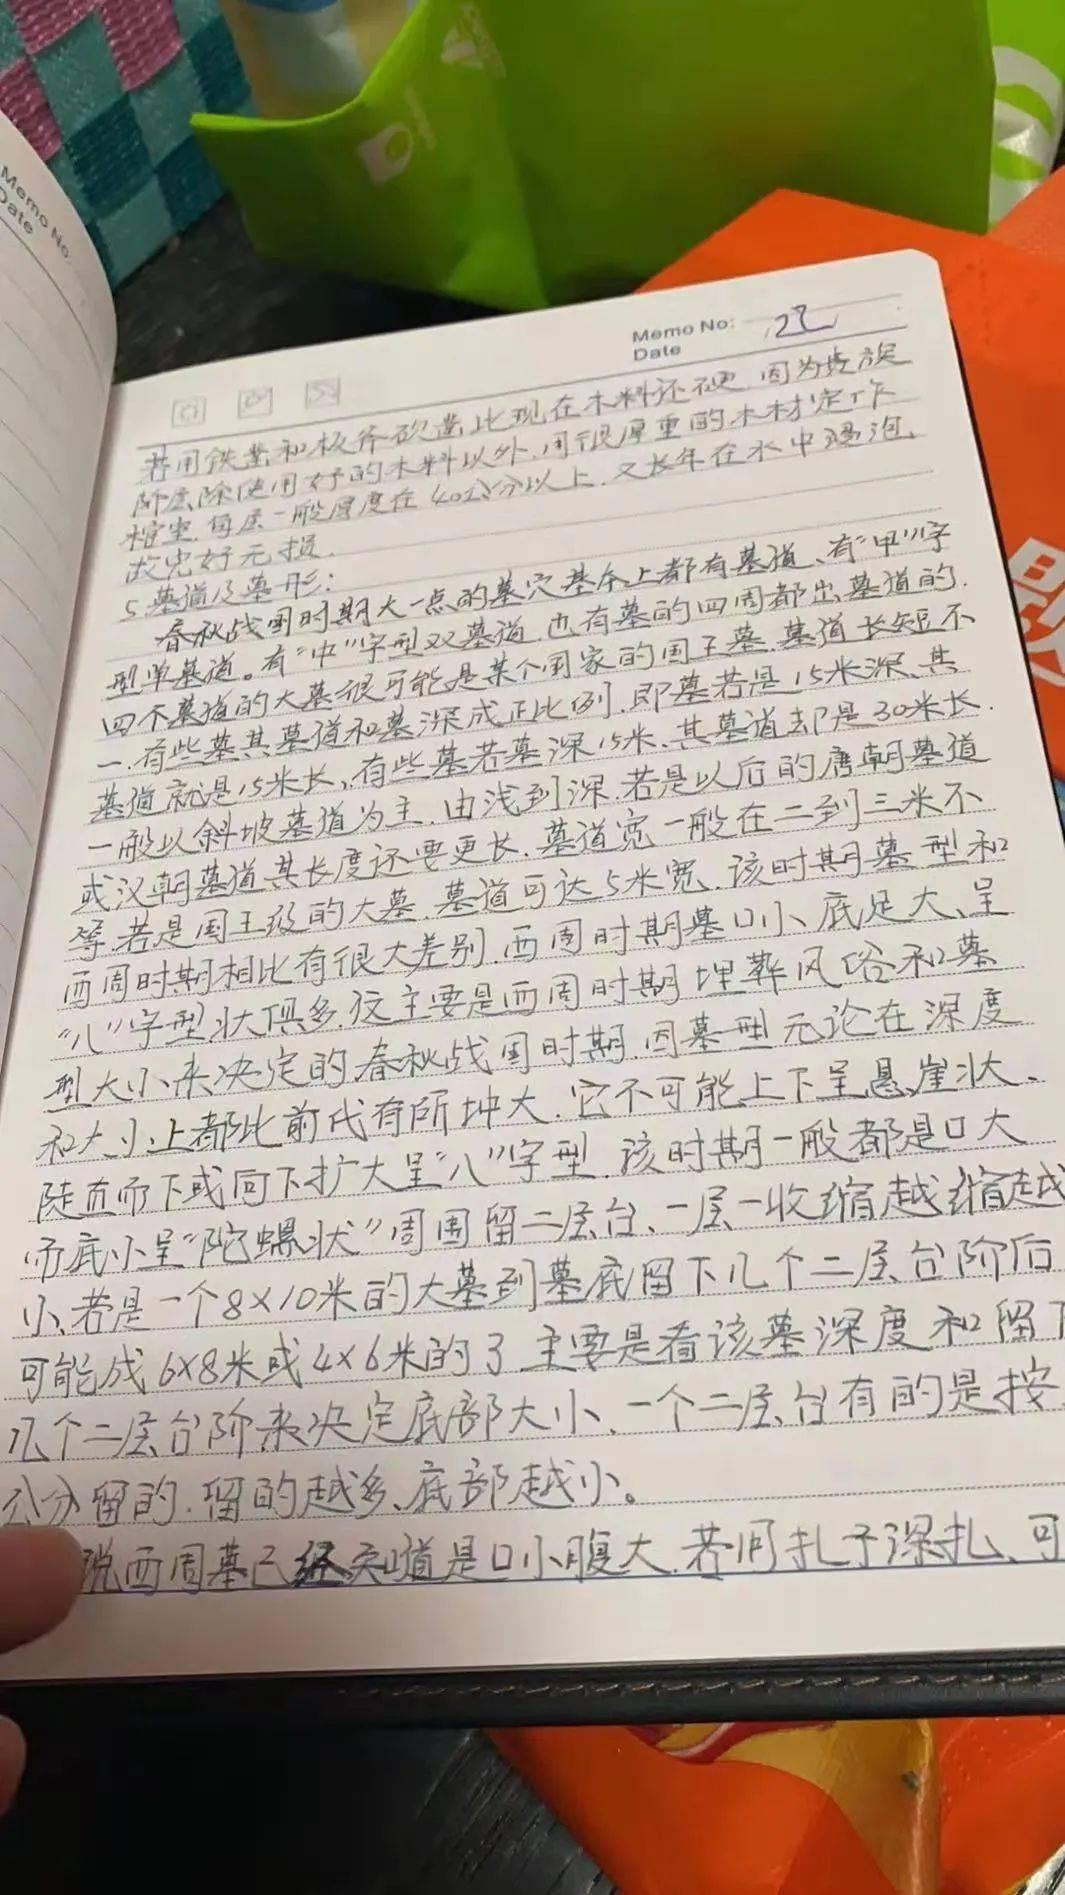 Memo No:
Date
Memo No: 22
Date
若用铁凿和板斧砍凿比现在木料还硬.因为贵族
阶层除使用好的木料以外.用很厚重的木材定作
椁室.每层一般厚度在40公分以上.又长年在水中浸泡.
故完好无损.
5.墓道及墓形:
春秋战国时期大一点的墓穴基本上都有墓道、有“甲”字
型单墓道。有“中”字型双墓道.也有墓的四周都出墓道的.
四个墓道的大墓很可能是某个国家的国王墓.墓道长短不
一.有些墓其墓道和墓深成正比例.即墓若是15米深、其
墓道就是15米长、有些墓若墓深15米、其墓道却是30米长.
一般以斜坡墓道为主.由浅到深.若是以后的唐朝墓道
或汉朝墓道其长度还要更长.墓道宽一般在二到三米不
等.若是国王级的大墓.墓道可达5米宽.该时期墓型和
西周时期相比有很大差别.西周时期墓口小、底足大、呈
“八”字型状俱多.这主要是西周时期埋葬风俗和墓
型大小来决定的.春秋战国时期.因墓型无论在深度
和大小上都比前代有所坤大.它不可能上下呈悬崖状、
陡直而下或向下扩大呈“八”字型.该时期一般都是口大
而底小呈“陀螺状”周围留二层台、一层一收缩越缩越
小、若是一个8×10米的大墓到墓底留下几个二层台阶后
可能成6×8米或4×6米的了.主要是看该墓深度和留下
几个二层台阶来决定底部大小、一个二层台有的是按
公分留的.留的越多、底部越小。
说西周墓已经知道是口小腹大.若问扎子深扎、可